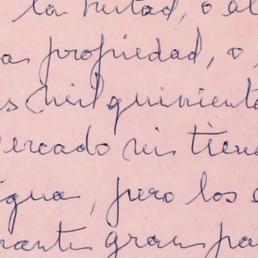 la mitad, o al
propiedad, o
mil quiniento
ercado ni tiene
igua, pero los
rante gran pa